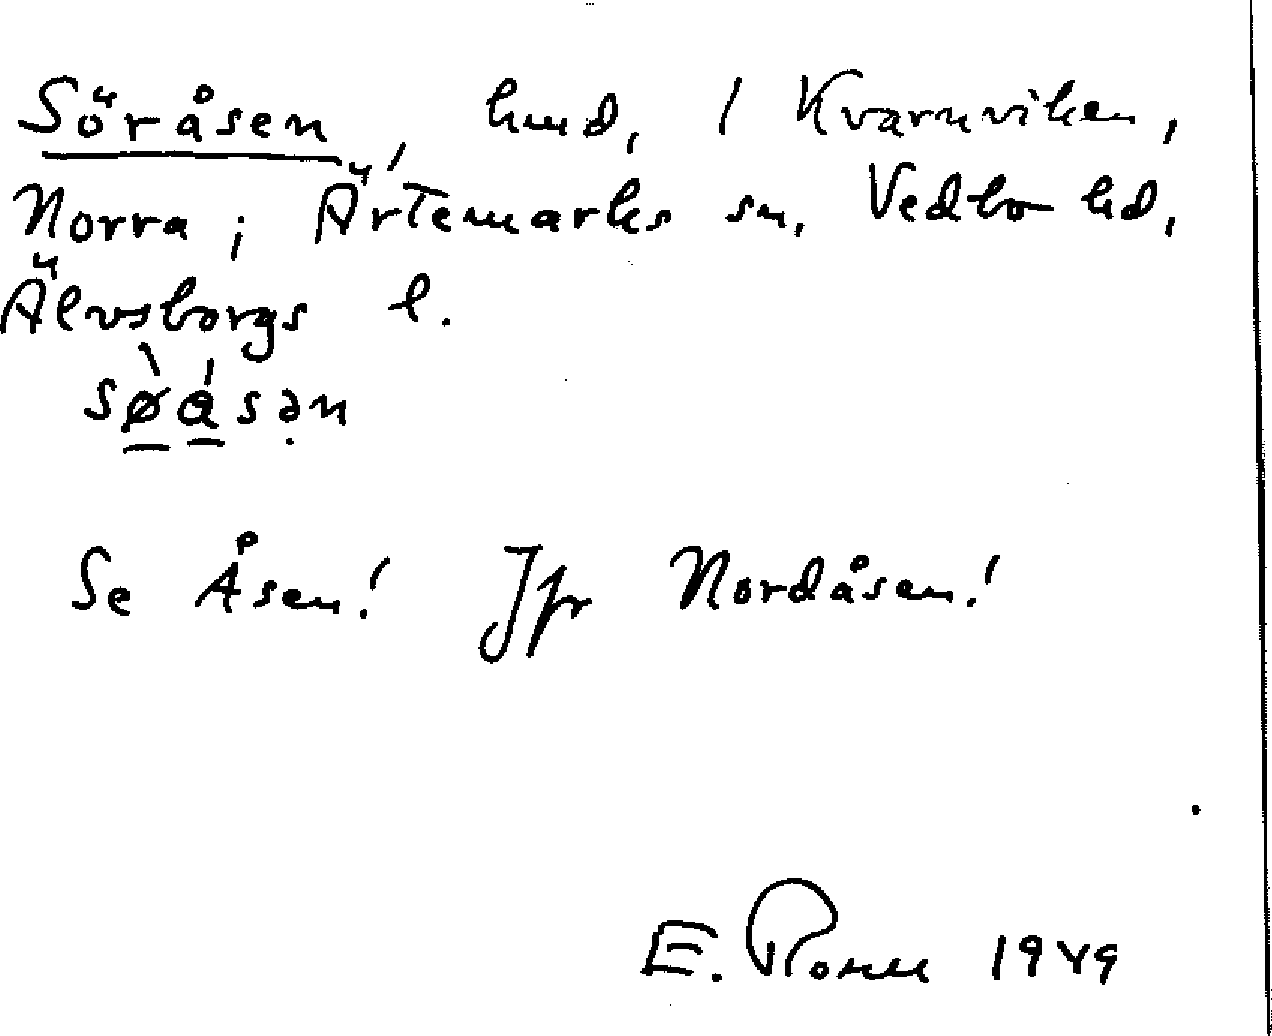 Söråsen, hmd, / Kvarnviken,
Norra; Ärtemarks sn, Vedbo hd,
Älvsborgs l.
sø̀ásən
Se Åsen! Jfr Nordåsen!
E. 1949